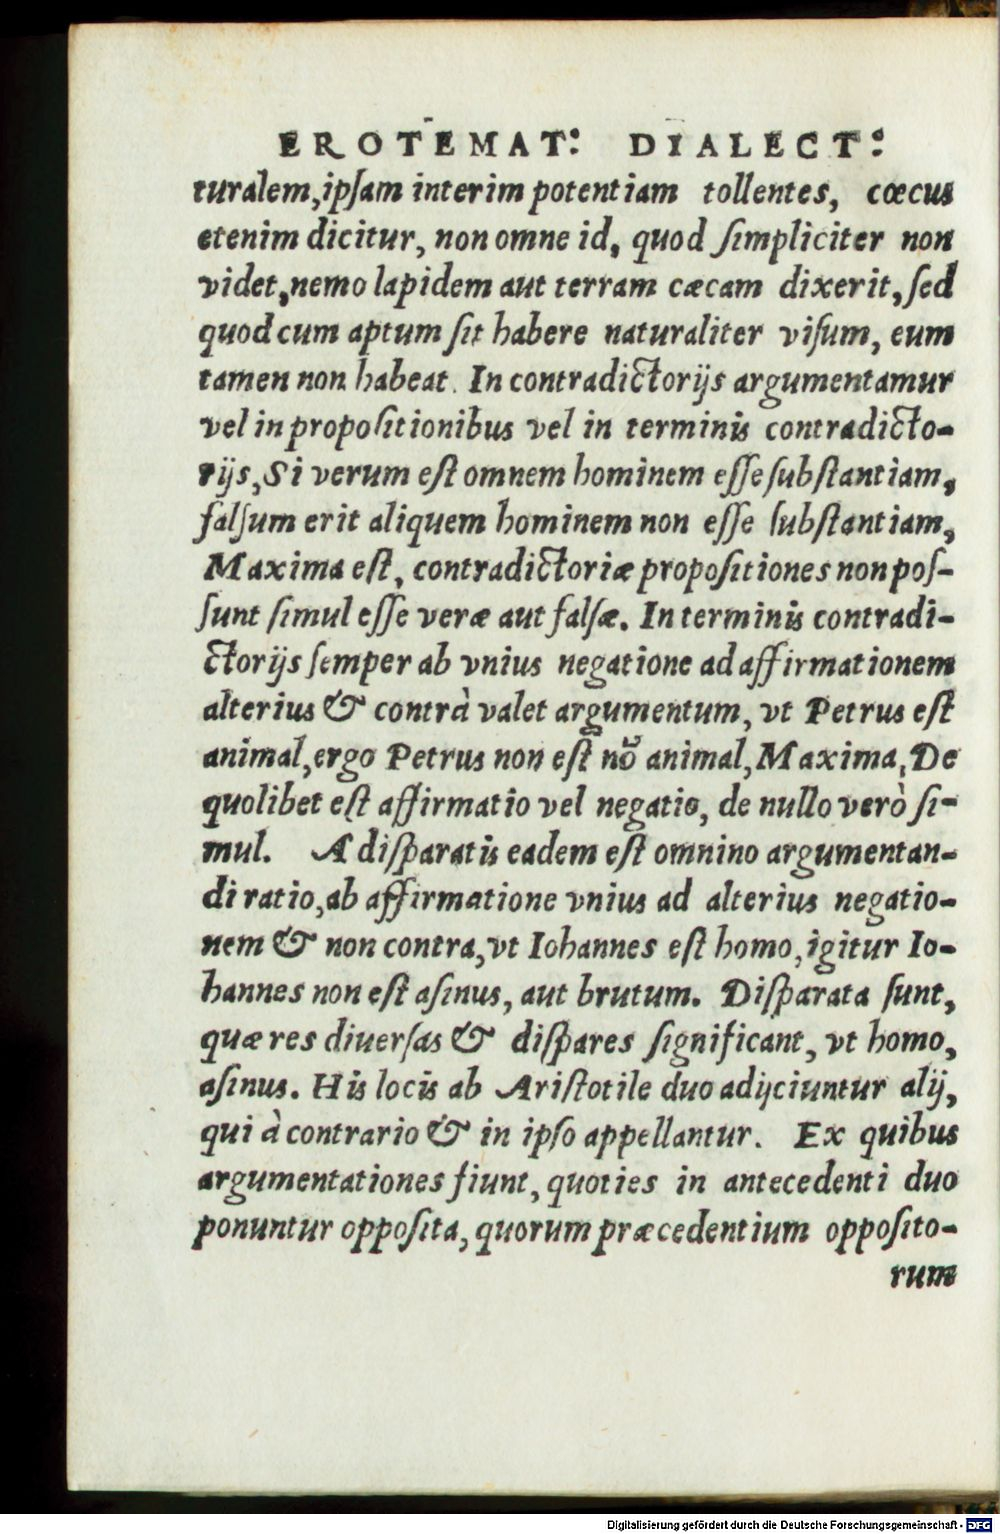 EROTEMAT: DIALECT:
turalem, ipſam interim potentiam tollentes, cœcus
etenim dicitur, non omne id, quod ſimpliciter non
videt, nemo lapidem aut terram cæcam dixerit, ſed
quod cum aptum ſit habere naturaliter viſum, eum
tamen non habeat. In contradictorijs argumentamur
vel in propoſitionibus vel in terminis contradicto-
rijs, Si verum eſt omnem hominem eſſe ſubſtantiam,
falſum erit aliquem hominem non eſſe ſubſtantiam,
Maxima eſt, contradictoriæ propoſitiones non poſ-
ſunt ſimul eſſe veræ aut falſæ. In terminis contradi-
ctorijs ſemper ab vnius negatione ad affirmationem
alterius & contrà valet argumentum, vt Petrus eſt
animal, ergo Petrus non eſt nō animal, Maxima, De
quolibet eſt affirmatio vel negatio, de nullo verò ſi-
mul. A diſparatis eadem eſt omnino argumentan-
di ratio, ab affirmatione vnius ad alterius negatio-
nem & non contra, vt Iohannes eſt homo, igitur Io-
hannes non eſt aſinus, aut brutum. Diſparata ſunt,
quæ res diuerſas & diſpares ſignificant, vt homo,
aſinus. His locis ab Ariſtotile duo adijciuntur alij,
qui à contrario & in ipſo appellantur. Ex quibus
argumentationes fiunt, quoties in antecedenti duo
ponuntur oppoſita, quorum præcedentium oppoſito-
rum
Digitalisierung gefördert durch die Deutsche Forschungsgemeinschaft - DFG